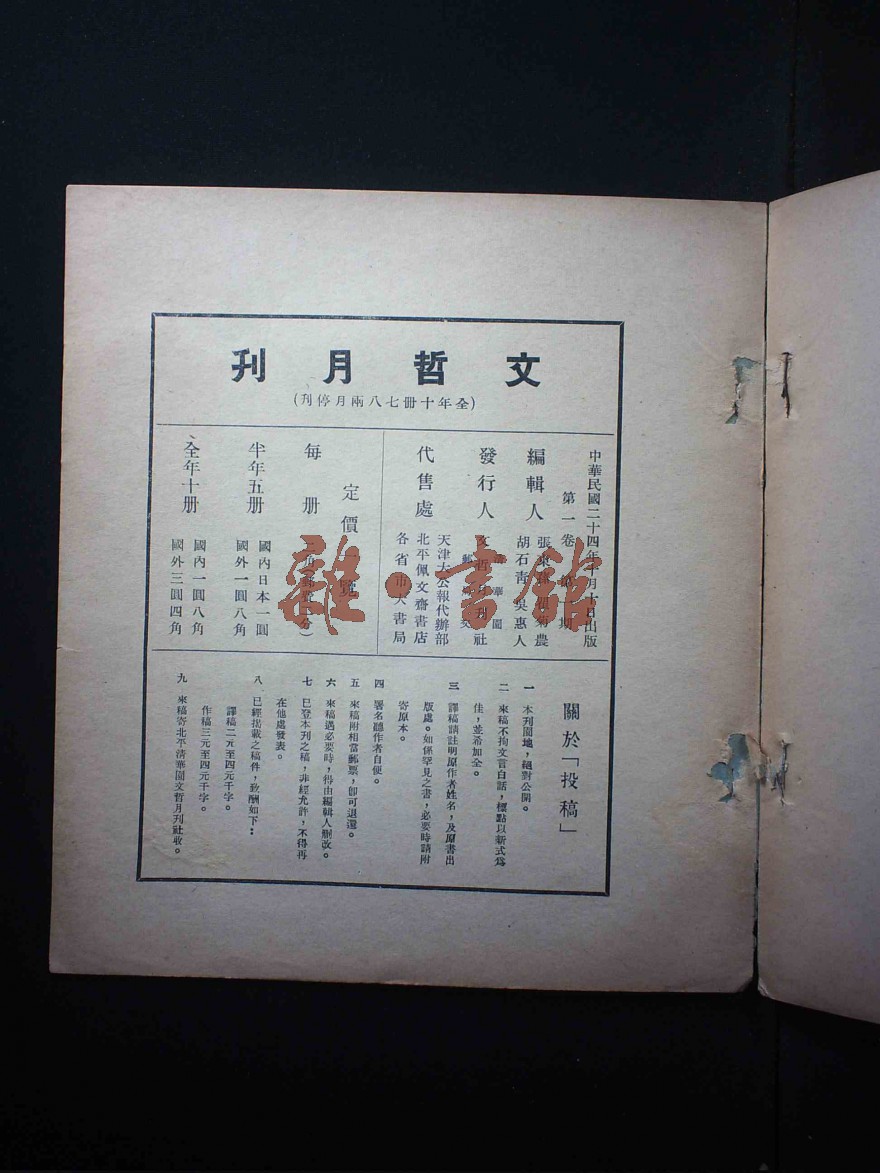 文哲月刊
(全年十冊七八兩月停刊)
中華民國二十四年十月十日出版
第一卷 第一期
編輯人
張東蓀 瞿菊農
胡石青 吳惠人
發行人
文哲月刊社
代售處
天津大公報代辦部
北平佩文齋書店
各省市大書局
定價一覽
每冊
二角(郵費一分)
半年五册
國內日本一圓
國外一圓八角
全年十册
國內一圓八角
國外三圓四角
關於「投稿」
一 本刊園地,絕對公開。
二 來稿不拘文言白話,標點以新式為
佳,並希加全。
三 譯稿請註明原作者姓名,及原書出
版處。如係罕見之書,必要時請附
寄原本。
四 署名聽作者自便。
五 來稿附相當郵票,卽可退還。
六 來稿遇必要時,得由編輯人刪改。
七 已登本刊之稿,非經允許,不得再
在他處發表。
八 已經揭載之稿件,致酬如下:
譯稿二元至四元千字。
作稿三元至四元千字。
九 來稿寄北平清華園文哲月刊社收。
雜·書館